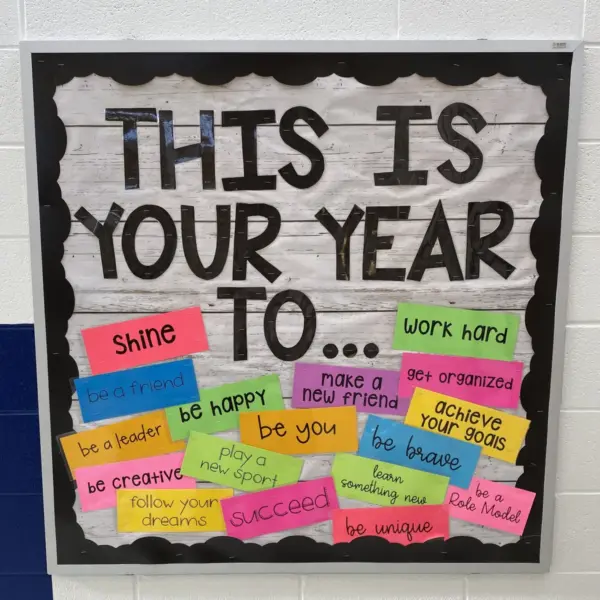 THIS IS
YOUR YEAR
TO...
Shine
work hard
be a friend
make a
new friend
get organized
be happy
achieve
your goals
be a leader
be you
be brave
play a
new sport
be creative
learn
something new
be a
Role Model
follow your
dreams
succeed
be unique